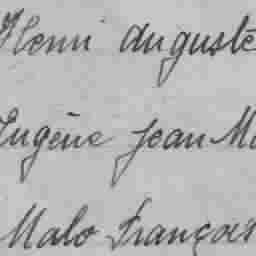 Henri Auguste
Eugène Jean M
Malo François